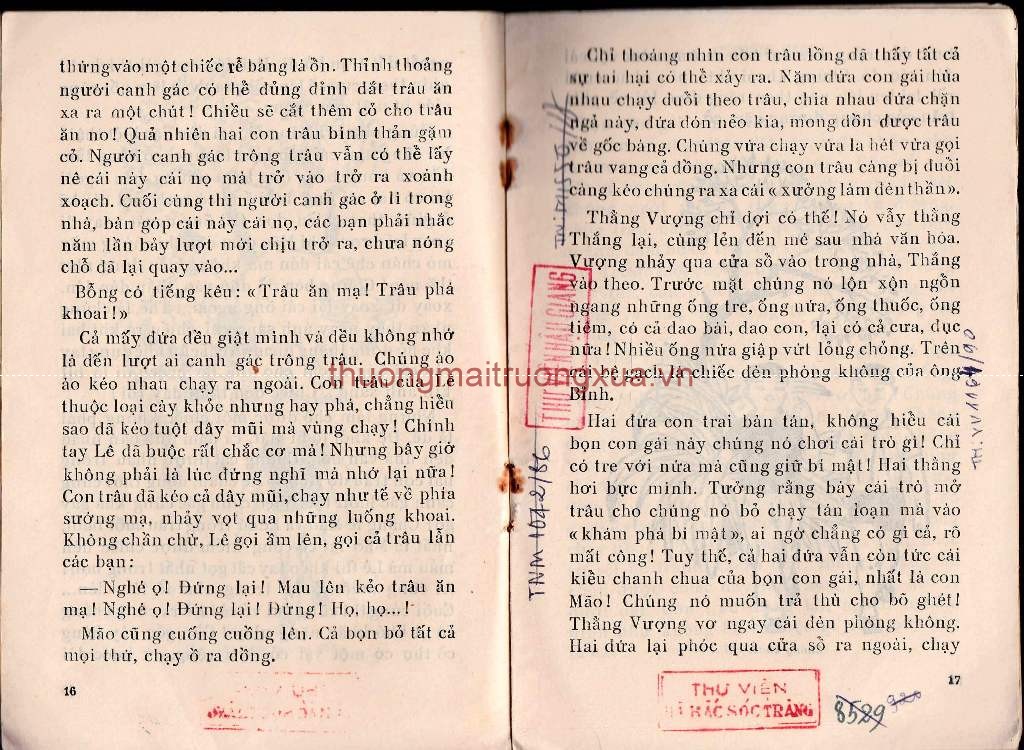 thừng vào một chiếc rễ bàng là ổn. Thỉnh thoảng
người canh gác có thể đủng đỉnh dắt trâu ăn
xa ra một chút! Chiều sẽ cắt thêm cỏ cho trâu
ăn no! Quả nhiên hai con trâu bình thản gặm
cỏ. Người canh gác trông trâu vẫn có thể lấy
nê cái này cái nọ mà trở vào trở ra xoành
xoạch. Cuối cùng thì người canh gác ở lì trong
nhà, bàn góp cái này cái nọ, các bạn phải nhắc
năm lần bảy lượt mới chịu trở ra, chưa nóng
chỗ đã lại quay vào...
Bỗng có tiếng kêu: «Trâu ăn mạ! Trâu phá
khoai!»
Cả mấy đứa đều giật mình và đều không nhớ
là đến lượt ai canh gác trông trâu. Chúng ào
ào kéo nhau chạy ra ngoài. Con trâu của Lê
thuộc loại cày khỏe nhưng hay phá, chẳng hiểu
sao đã kéo tuột dây mũi mà vùng chạy! Chính
tay Lê đã buộc rất chắc cơ mà! Nhưng bây giờ
không phải là lúc đứng nghĩ mà nhớ lại nữa!
Con trâu đã kéo cả dây mũi, chạy như tế về phía
sướng mạ, nhảy vọt qua những luống khoai.
Không chần chừ, Lê gọi ầm lên, gọi cả trâu lẫn
các bạn:
— Nghé ọ! Đứng lại! Mau lên kẻo trâu ăn
mạ! Nghé ọ! Đứng lại! Đứng! Họ, họ...!
Mão cũng cuống cuồng lên. Cả bọn bỏ tất cả
mọi thứ, chạy ồ ra đồng.
16
Chỉ thoáng nhìn con trâu lồng đã thấy tất cả
sự tai hại có thể xảy ra. Năm đứa con gái hùa
nhau chạy đuổi theo trâu, chia nhau đứa chặn
ngả này, đứa đón nẻo kia, mong dồn được trâu
về gốc bàng. Chúng vừa chạy vừa la hét vừa gọi
trâu vang cả đồng. Nhưng con trâu càng bị đuổi
càng kéo chúng ra xa cái «xưởng làm đèn thần».
Thằng Vượng chỉ đợi có thế! Nó vẫy thằng
Thắng lại, cùng lẻn đến mé sau nhà văn hóa.
Vượng nhảy qua cửa sổ vào trong nhà, Thắng
vào theo. Trước mặt chúng nó lộn xộn ngồn
ngang những ống tre, ống nứa, ống thuốc, ống
tiêm, có cả dao bài, dao con, lại có cả cưa, đục
nữa! Nhiều ống nứa giập vứt lỏng chỏng. Trên
cái bệ gạch là chiếc đèn phòng không của ông
Bỉnh.
Hai đứa con trai bàn tán, không hiểu cái
bọn con gái này chúng nó chơi cái trò gì! Chỉ
có tre với nứa mà cũng giữ bí mật! Hai thằng
hơi bực mình. Tưởng rằng bày cái trò mở
trâu cho chúng nó bỏ chạy tán loạn mà vào
«khám phá bí mật», ai ngờ chẳng có gì cả, rõ
mất công! Tuy thế, cả hai đứa vẫn còn tức cái
kiểu chanh chua của bọn con gái, nhất là con
Mão! Chúng nó muốn trả thù cho bõ ghét!
Thằng Vượng vơ ngay cái đèn phòng không.
Hai đứa lại phóc qua cửa sổ ra ngoài, chạy
17
thuongmaitruongxua.vn
TNM 1042/86
THƯ VIỆN
SÓC TRĂNG
8529